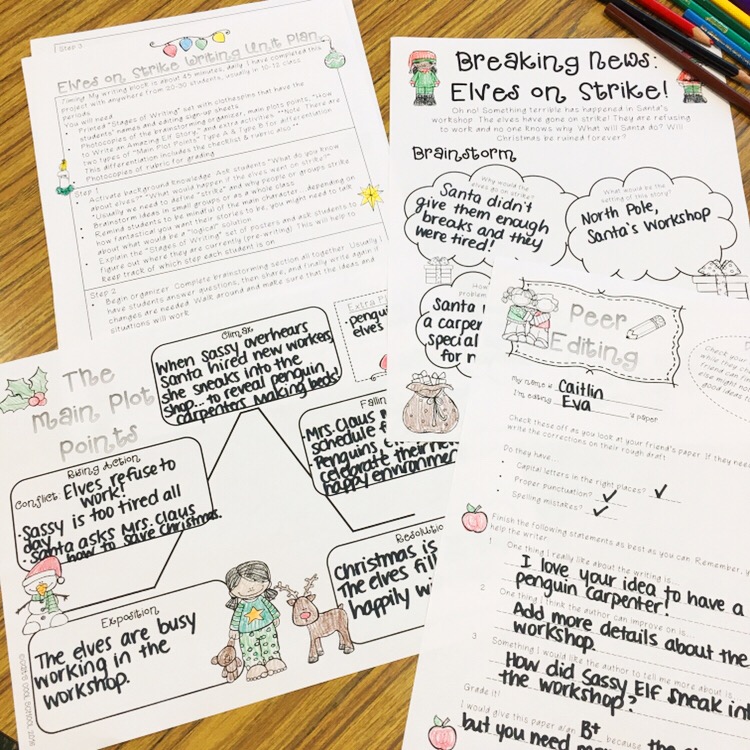 Step 3
Elves on Strike Writing Unit Plan
Timing: My writing block is about 45 minutes, daily. I have completed this
project with anywhere from 20-30 students, usually in 10-12 class
periods
You will need
Printed "Stages of Writing" set with clothespins that have the
students' names and editing sign-up sheets
Photocopies of the brainstorming organizer, main plot points, "How
to Write an Amazing Story," and extra activities *Note: There are
two types of "Main Plot Points," Type A & Type B for differentiation
This differentiation includes the checklist & rubric also *
Photocopies of rubric for grading
Step 1
Activate background knowledge. Ask students "What do you know
about elves?" "What would happen if the elves went on strike?"
Usually we need to define "strike" and why people or groups strike
Brainstorm ideas in small groups or as a whole class
Remind students to be mindful of the main character... depending on
how fantastical you want their stories to be, you might need to talk
about what would be a "logical" solution.
Explain the "Stages of Writing" set of posters and ask students to
figure out where they are currently (pre-writing) This will help to
keep track of which step each student is on
Step 2
Begin organizer. Complete brainstorming section all together. Usually I
have students answer questions, then share, and finally write again if
changes are needed. Walk around and make sure that the ideas and
situations will work
Breaking News:
Elves on Strike!
Oh no! Something terrible has happened in Santa's
workshop. The elves have gone on strike! They are refusing
to work and no one knows why. What will Santa do? Will
Christmas be ruined forever?
Brainstorm
Why would the
elves go on strike?
Santa didn't
give them enough
breaks and they
were tired!
What would be the
setting of this story?
North Pole,
Santa's Workshop
How
problem
Santa
a carpen
special
for
The
Main Plot
Points
Climax
When Sassy overhears
Santa hired new workers,
she sneaks into the
shop... to reveal penguin
carpenters making beds!
penguin
elves
Rising Action
Conflict: Elves refuse to
work!
Sassy is too tired all
day
Santa asks Mrs. Claus
how to save Christmas.
Fallin
Mrs. Claus
schedule
Penguins
celebrate their
happy environmen
Exposition
The elves are busy
working in the
workshop.
Resolutio
Christmas is
The elves fill
happily
Peer
Editing
My name is Caitlin
I'm editing Eva 's paper
Check these off as you look at your friend's paper. If they need
write the corrections on their rough draft
Do they have...
Capital letters in the right places? ✓
Proper punctuation? ✓
Spelling mistakes? ✓
Finish the following statements as best as you can. Remember, y
help the writer
1 One thing I really like about the writing is
I love your idea to have a
penguin carpenter!
2 One thing I think the author can improve on is
Add more details about the
workshop.
3 Something I would like the author to tell me more about is
How did Sassy Elf sneak int
the workshop?
Grade it!
I would give this paper a/an B+ because
but you need